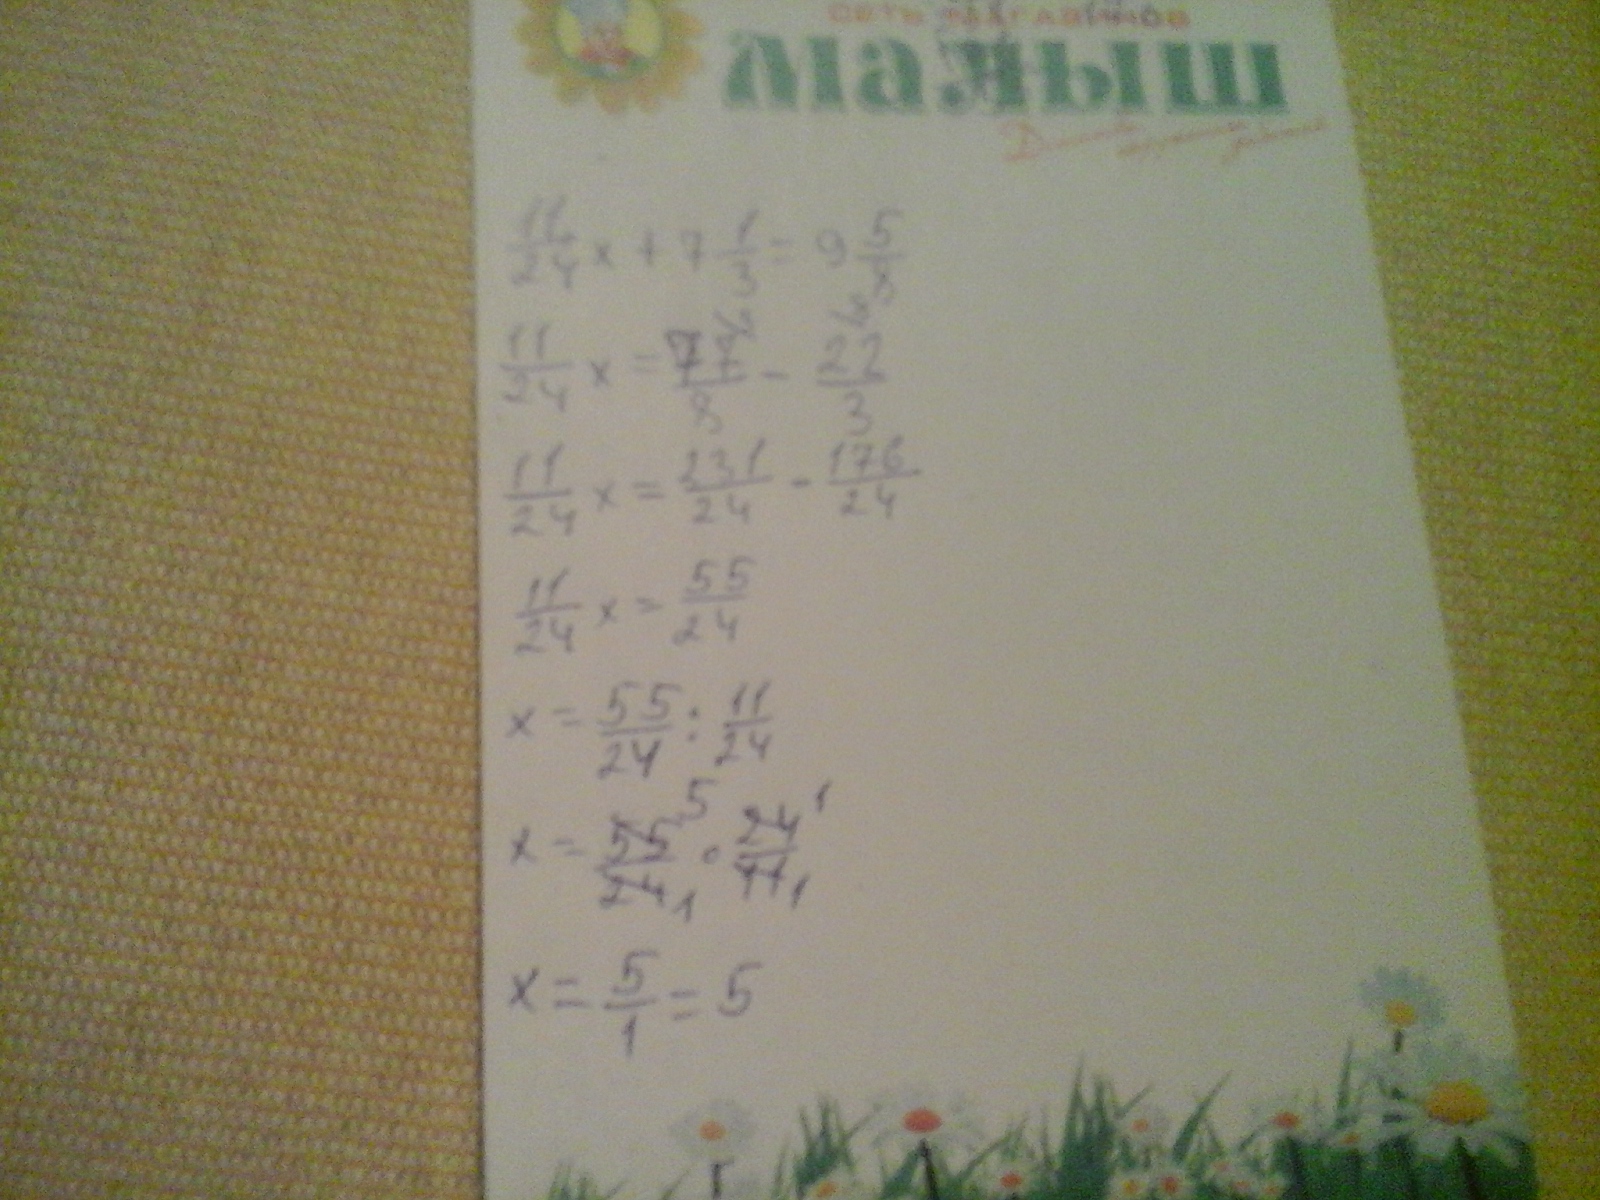 сеть магазинов
малыш
11/24 x + 7 1/3 = 9 5/8
11/24 x = 77/8 - 22/3
11/24 x = 231/24 - 176/24
11/24 x = 55/24
x = 55/24 : 11/24
x = 55 5/24 1 · 24 1/11 1
x = 5/1 = 5